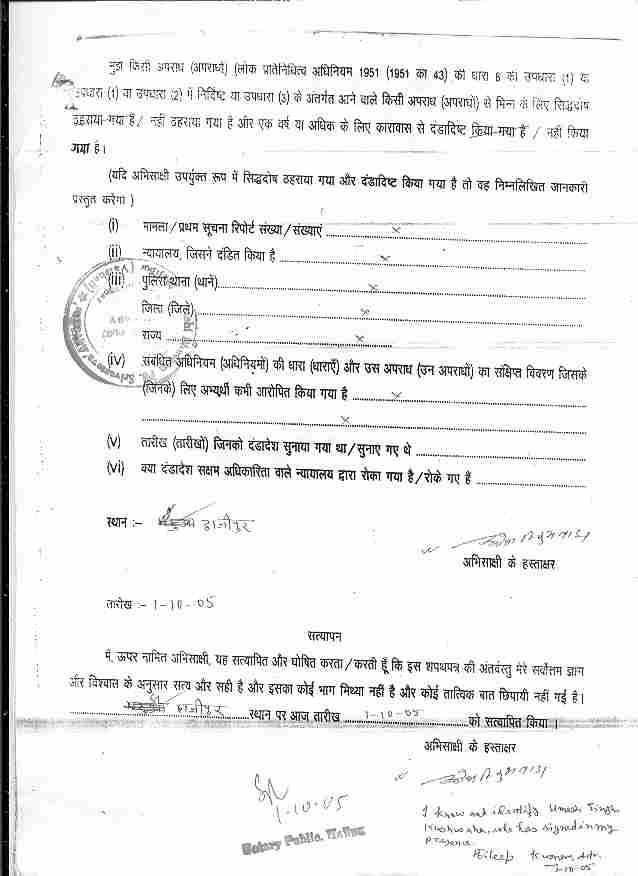 मुझे किसी अपराध (अपराधों) (लोक प्रतिनिधित्व अधिनियम 1951 (1951 का 43) की धारा 8 की उपधारा (1) या
उपधारा (1) या उपधारा (2) में निर्दिष्ट या उपधारा (3) के अंतर्गत आने वाले किसी अपराध (अपराधों) से भिन्न के लिए सिद्धदोष
ठहराया गया है / नहीं ठहराया गया है और एक वर्ष या अधिक के लिए कारावास से दंडादिष्ट किया गया है / नहीं किया
गया है।
(यदि अभिसाक्षी उपर्युक्त रूप में सिद्धदोष ठहराया गया और दंडादिष्ट किया गया है तो वह निम्नलिखित जानकारी
प्रस्तुत करेगा)
(i) मामला/प्रथम सूचना रिपोर्ट संख्या/संख्याएं ........ x
(ii) न्यायालय, जिसने दंडित किया है ........ x
(iii) पुलिस थाना (थाने) ........ x
जिला (जिले) ........ x
राज्य ........ x
(iv) संबंधित अधिनियम (अधिनियमों) की धारा (धाराएँ) और उस अपराध (उन अपराधों) का संक्षिप्त विवरण जिसके
(जिनके) लिए अभ्यर्थी कभी आरोपित किया गया है ........ x
........ x
(v) तारीख (तारीखों) जिनको दंडादेश सुनाया गया था/सुनाए गए थे ........
(vi) क्या दंडादेश सक्षम अधिकारिता वाले न्यायालय द्वारा रोका गया है/रोके गए हैं ........
स्थान :- हाजीपुर
अभिसाक्षी के हस्ताक्षर
तारीख :- 1-10-05
सत्यापन
मैं, ऊपर नामित अभिसाक्षी, यह सत्यापित और घोषित करता/करती हूँ कि इस शपथपत्र की अंतर्वस्तु मेरे सर्वोत्तम ज्ञान
और विश्वास के अनुसार सत्य और सही है और इसका कोई भाग मिथ्या नहीं है और कोई तात्विक बात छिपायी नहीं गई है।
हाजीपुर स्थान पर आज तारीख 1-10-05 को सत्यापित किया।
अभिसाक्षी के हस्ताक्षर
1-10-05
Notary Public,
I know and identify Umesh Singh
Kushwaha, who has signed in my
presence
Dileep Kumar, Adv.
1-10-05